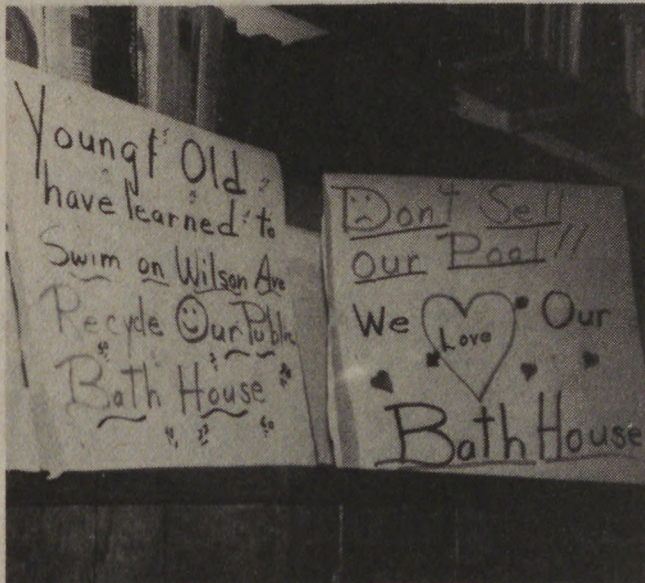 Young & Old
have learned to
Swim on Wilson Ave
Recycle Our Public
Bath House
Don't Sell
our Pool!!
We Love Our
Bath House